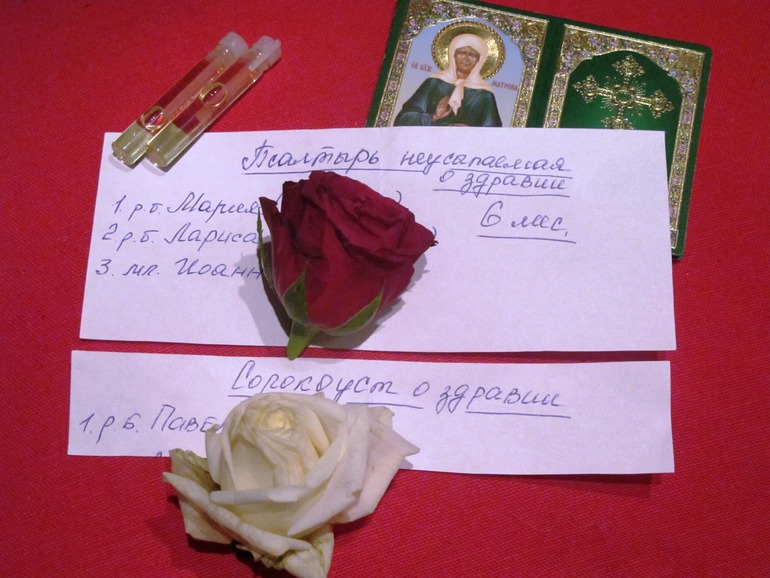 СВ БЛЖ МАТРОНА
Псалтырь неусыпаемая
о здравии
1. р.б. Мария
6 мес.
2. р.б. Лариса
3. мл. Иоанн
Сорокоуст о здравии
1. р. б. Павел